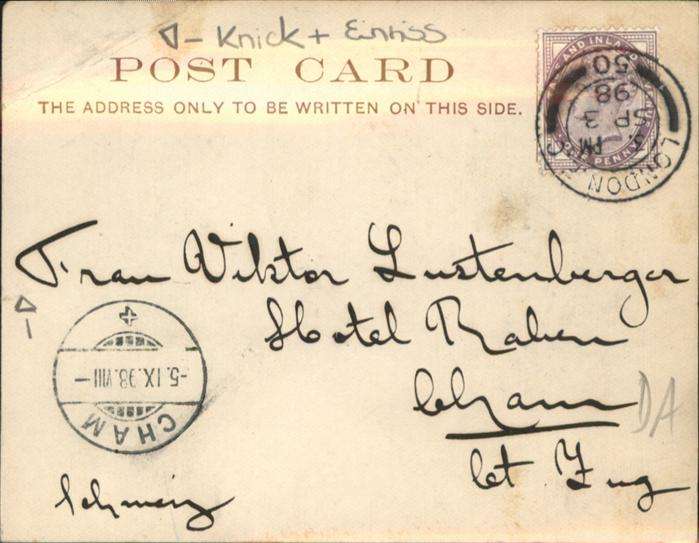 ▷– Knick + Einriss
POST CARD
THE ADDRESS ONLY TO BE WRITTEN ON THIS SIDE.
LONDON
PM
SP 3
98
50
Frau Viktor Lustenberger
Hotel Raben
Cham
Ct. Zug
Schweiz
DA
CHAM
-5.IX.98.VIII-